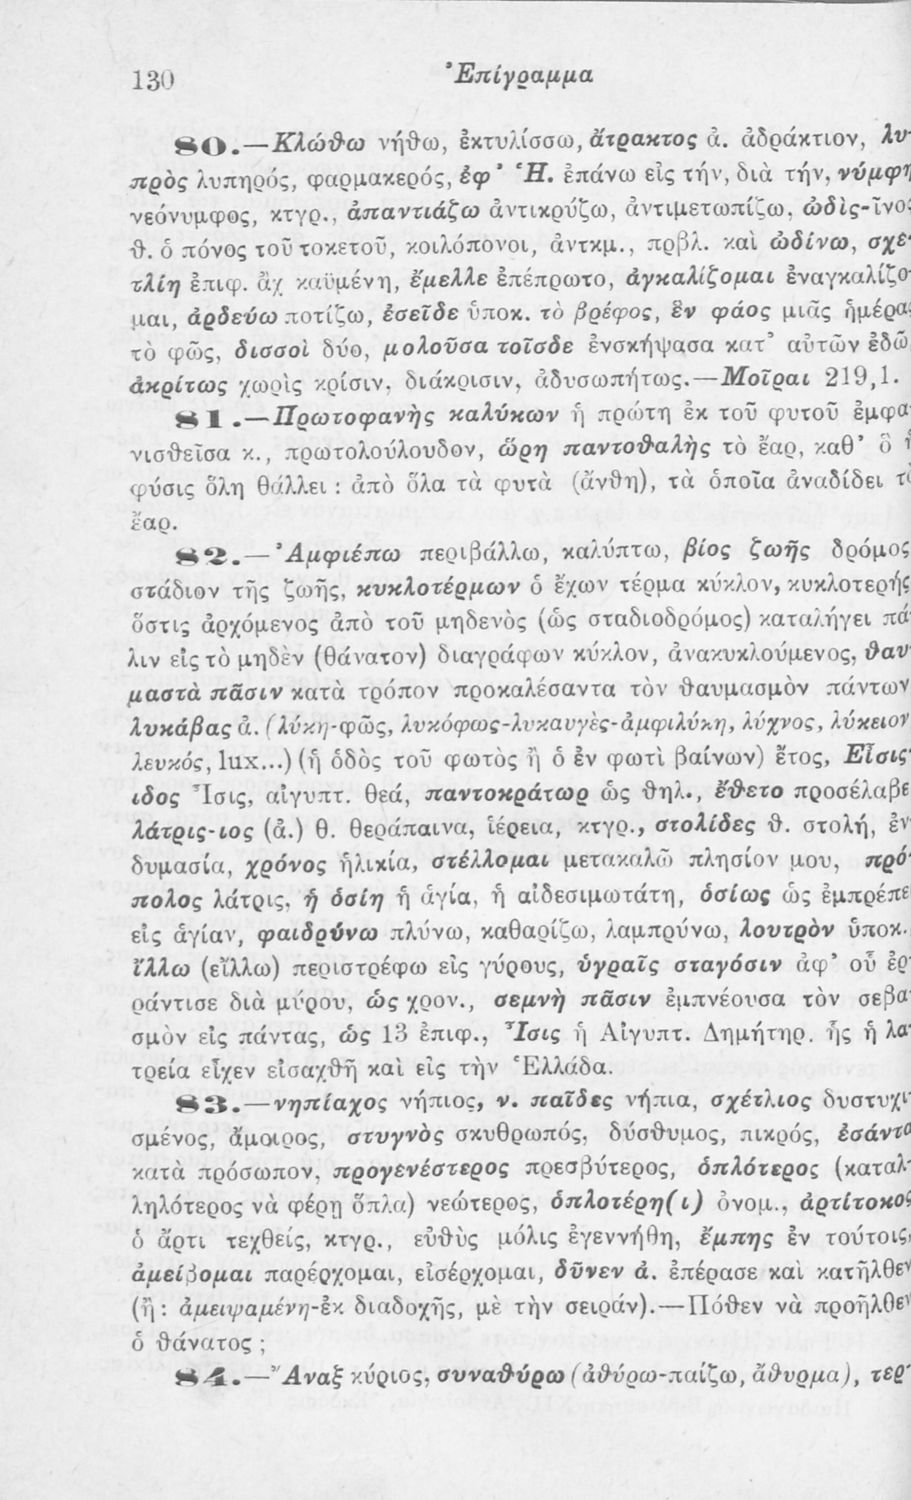 130 Ἐπίγραμμα
80.—Κλώθω νήθω, ἐκτυλίσσω, ἄτρακτος ἀ. ἀδράκτιον, λυ-
πρὸς λυπηρός, φαρμακερός, ἐφ’ Ἡ. ἐπάνω εἰς τήν, διὰ τήν, νύμφη
νεόνυμφος, κτγρ., ἀπαντιάζω ἀντικρύζω, ἀντιμετωπίζω, ὠδὶς-ῖνος
θ. ὁ πόνος τοῦ τοκετοῦ, κοιλόπονοι, ἀντκμ., πρβλ. καὶ ὠδίνω, σχε-
τλίη ἐπιφ. ἂχ καϋμένη, ἔμελλε ἐπέπρωτο, ἀγκαλίζομαι ἐναγκαλίζο-
μαι, ἀρδεύω ποτίζω, ἐσεῖδε ὑποκ. τὸ βρέφος, ἓν φάος μιᾶς ἡμέρας
τὸ φῶς, δισσοὶ δύο, μολοῦσα τοῖσδε ἐνσκήψασα κατ’ αὐτῶν ἐδῶ
ἀκρίτως χωρὶς κρίσιν, διάκρισιν, ἀδυσωπήτως.—Μοῖραι 219,1.
81.—Πρωτοφανὴς καλύκων ἡ πρώτη ἐκ τοῦ φυτοῦ ἐμφα-
νισθεῖσα κ., πρωτολούλουδον, ὥρη παντοθαλὴς τὸ ἔαρ, καθ’ ὃ ἡ
φύσις ὅλη θάλλει : ἀπὸ ὅλα τὰ φυτὰ (ἄνθη), τὰ ὁποῖα ἀναδίδει τὸ
ἔαρ.
82.—Ἀμφιέπω περιβάλλω, καλύπτω, βίος ζωῆς δρόμος
στάδιον τῆς ζωῆς, κυκλοτέρμων ὁ ἔχων τέρμα κύκλον, κυκλοτερής
ὅστις ἀρχόμενος ἀπὸ τοῦ μηδενὸς (ὡς σταδιοδρόμος) καταλήγει πά-
λιν εἰς τὸ μηδὲν (θάνατον) διαγράφων κύκλον, ἀνακυκλούμενος, θαυ-
μαστὰ πᾶσιν κατὰ τρόπον προκαλέσαντα τὸν θαυμασμὸν πάντων
λυκάβας ἀ. (λύκη-φῶς, λυκόφως-λυκαυγὲς-ἀμφιλύκη, λύχνος, λύκειον
λευκός, lux...) (ἡ ὁδὸς τοῦ φωτὸς ἢ ὁ ἐν φωτὶ βαίνων) ἔτος, Εἶσις-
ιδος Ἶσις, αἰγυπτ. θεά, παντοκράτωρ ὡς θηλ., ἔθετο προσέλαβε
λάτρις-ιος (ἀ.) θ. θεράπαινα, ἱέρεια, κτγρ., στολίδες θ. στολή, ἐν-
δυμασία, χρόνος ἡλικία, στέλλομαι μετακαλῶ πλησίον μου, πρό-
πολος λάτρις, ἡ ὁσίη ἡ ἁγία, ἡ αἰδεσιμωτάτη, ὁσίως ὡς ἐμπρέπει
εἰς ἁγίαν, φαιδρύνω πλύνω, καθαρίζω, λαμπρύνω, λουτρὸν ὑποκ.
ἴλλω (εἴλλω) περιστρέφω εἰς γύρους, ὑγραῖς σταγόσιν ἀφ’ οὗ ἐρ-
ράντισε διὰ μύρου, ὡς χρον., σεμνὴ πᾶσιν ἐμπνέουσα τὸν σεβα-
σμὸν εἰς πάντας, ὡς 13 ἐπιφ., Ἶσις ἡ Αἰγυπτ. Δημήτηρ, ἧς ἡ λα-
τρεία εἶχεν εἰσαχθῆ καὶ εἰς τὴν Ἑλλάδα.
83.—νηπίαχος νήπιος, ν. παῖδες νήπια, σχέτλιος δυστυχι-
σμένος, ἄμοιρος, στυγνὸς σκυθρωπός, δύσθυμος, πικρός, ἐσάντα
κατὰ πρόσωπον, προγενέστερος πρεσβύτερος, ὁπλότερος (καταλ-
ληλότερος νὰ φέρῃ ὅπλα) νεώτερος, ὁπλοτέρη(ι) ὀνομ., ἀρτίτοκος
ὁ ἄρτι τεχθείς, κτγρ., εὐθὺς μόλις ἐγεννήθη, ἔμπης ἐν τούτοις,
ἀμείβομαι παρέρχομαι, εἰσέρχομαι, δῦνεν ἀ. ἐπέρασε καὶ κατῆλθεν
(ἢ : ἀμειψαμένη-ἐκ διαδοχῆς, μὲ τὴν σειράν).—Πόθεν νὰ προῆλθεν
ὁ θάνατος ;
84.—Ἄναξ κύριος, συναθύρω (ἀθύρω-παίζω, ἄθυρμα), τερ-